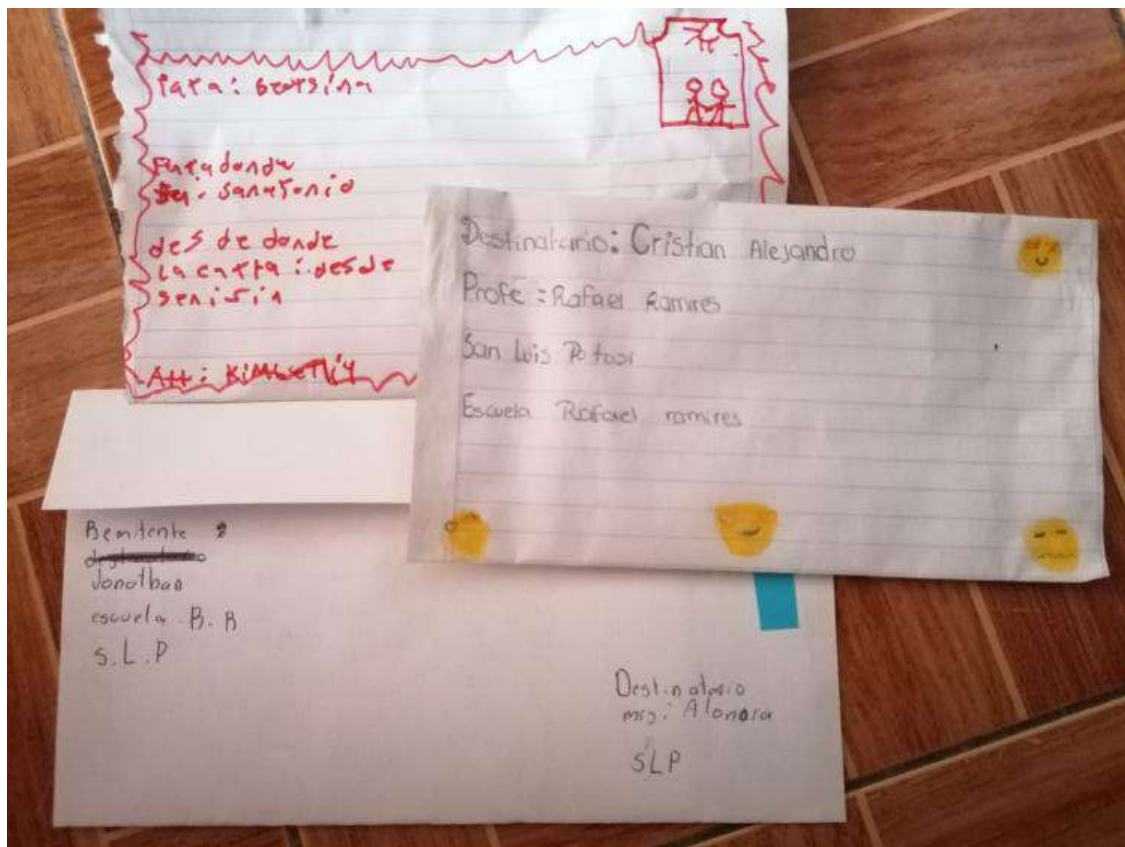 Para: Georsina
Para donde
San Antonio
des de donde
la carta: desde
Att: Kimberliy
Destinatario: Cristian Alejandro
Profe: Rafael Ramires
San Luis Potosi
Escuela Rafael ramires
Remitente
Jonathan
escuela. R. R
S.L.P
Destinatario
Alondra
SLP